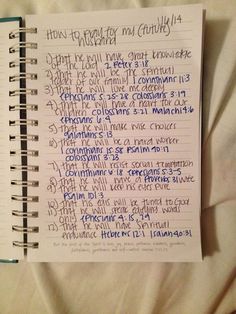 1/4/14
How to pray for my (future)
husband
1) that he will have great knowledge
of the Lord 2 Peter 3:18
2) that he will be the spiritual
leader of our family 1 corinthians 11:3
3) that he will love me deeply
Ephesians 5:25-28 colossians 3:19
4) that he will have a heart for our
children colossians 3:21 malachi 4:6
ephesians 6:4
5) that he will make wise choices
galatians 5:13
6) that he will be a hard worker
1 corinthians 15:58 Psalm 90:17
colossians 3:23
7) that he will resist sexual temptation
1 corinthians 6:18 ephesians 5:3-5
8) that he will have a Proverbs 31 wife
9) that he will keep his eyes pure
Psalm 101:3
10) that his ears will be tuned to God
11) that he will speak edifying words
only Ephesians 4:15, 29
12) that he will have spiritual
endurance Hebrews 12:1 Isaiah 40:31
But the fruit of the Spirit is love, joy, peace, patience, kindness, goodness,
faithfulness, gentleness and self-control.